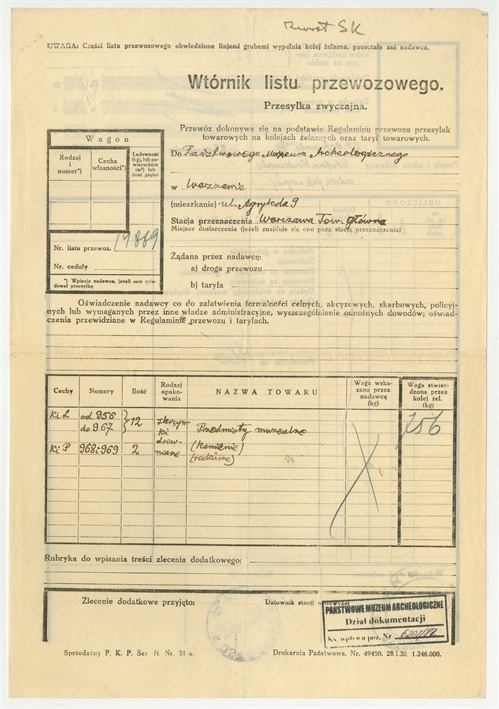 Zwrot SK
UWAGA: Części listu przewozowego obwiedzione linjami grubemi wypełnia kolej żelazna, pozostałe zaś nadawca.
Wtórnik listu przewozowego.
Przesyłka zwyczajna.
Przewóz dokonywa się na podstawie Regulaminu przewozu przesyłek
towarowych na kolejach żelaznych oraz taryf towarowych.
Wagon
Rodzaj i numer*)
Cecha własności*)
Ładowność (kg), lub powierzchnia (m²), lub ilość pięter
Nr. listu przewoz. 19869
Nr. ceduły
*) Wpisuje nadawca, jeżeli sam załadował przesyłkę
Do Państwowego Muzeum Archeologicznego
w Warszawie
(mieszkanie) ul. Agrykola 9
Stacja przeznaczenia Warszawa Tow. Główna
Miejsce dostarczenia (jeżeli znajduje się one poza stacją przeznaczenia)
Żądana przez nadawcę:
a) droga przewozu
b) taryfa
Oświadczenie nadawcy co do załatwienia formalności celnych, akcyzowych, skarbowych, policyj-
nych lub wymaganych przez inne władze administracyjne, wyszczególnienie odnośnych dowodów; oświad-
czenia przewidziane w Regulaminie przewozu i taryfach.
Cechy
Numery
Ilość
Rodzaj opakowania
NAZWA TOWARU
Waga wskazana przez nadawcę (kg)
Waga stwierdzona przez kolej żel. (kg)
Ki Ł od 956 do 967 12 skrzynki drewniane Przedmioty muzealne 756
Ki P 968 i 969 2 (kamienie)
Rubryka do wpisania treści zlecenia dodatkowego:
Zlecenie dodatkowe przyjęto:
Datownik stacji
PAŃSTWOWE MUZEUM ARCHEOLOGICZNE
Dział dokumentacji
Ks. wpływu poz. Nr
Sprzedażny P. K. P. Ser H. Nr. 51-a.
Drukarnia Państwowa. Nr. 49450. 28 I.30. 1.246.000.